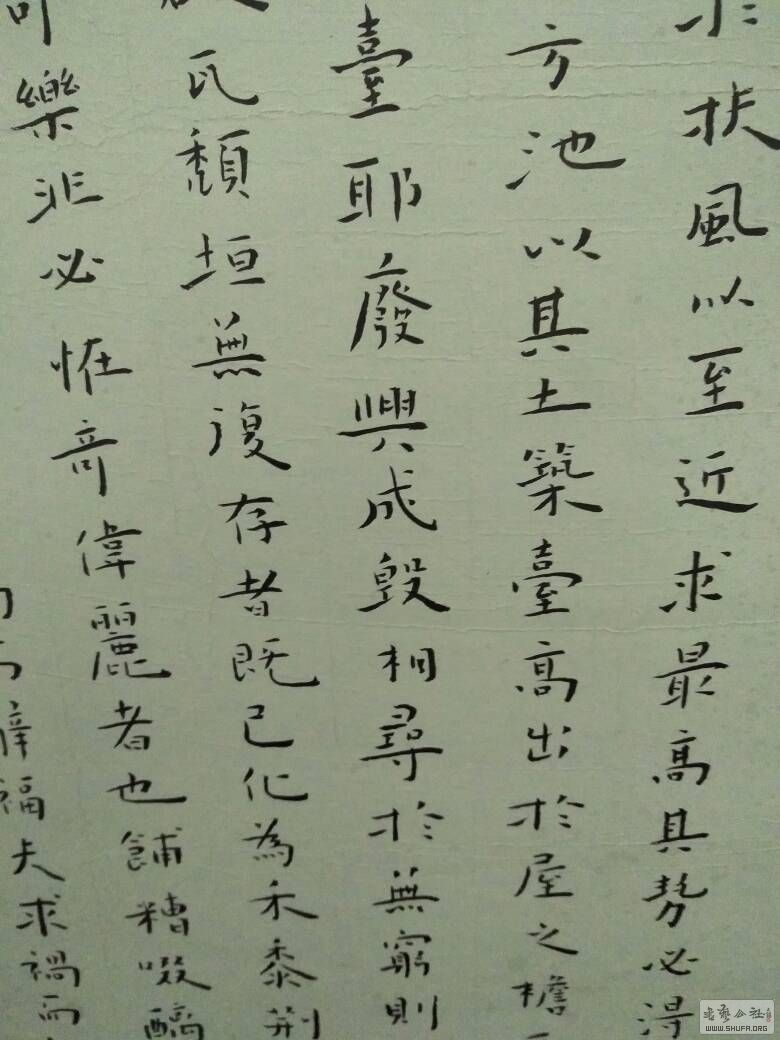 於扶風以至近求最高其勢必得
方池以其土築臺高出於屋之檐
臺耶廢興成毀相尋於無窮則
瓦頹垣無復存者既已化為禾黍荊
可樂非必怪奇偉麗者也餔糟啜醨
福夫求禍而
書藝公社
WWW.SHUFA.ORG